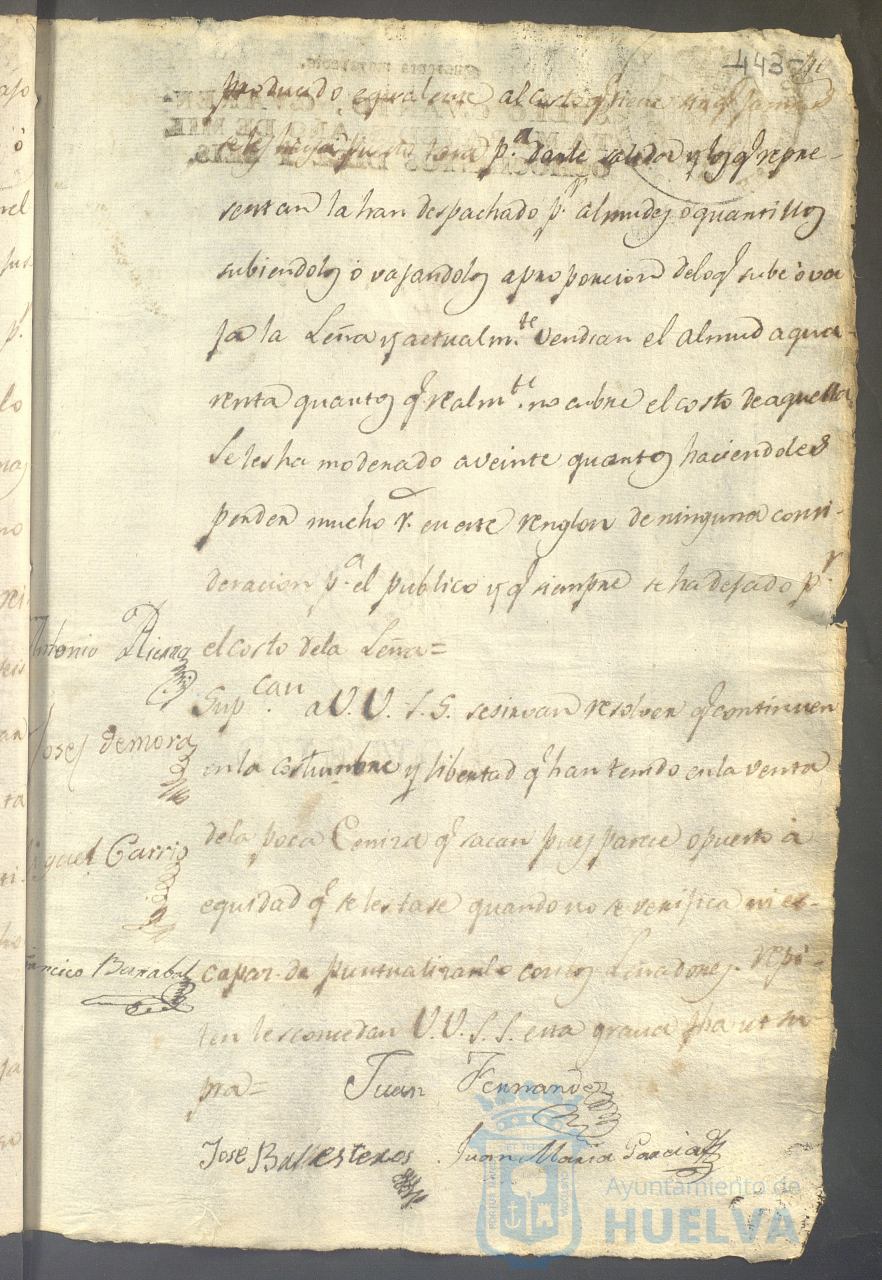 443
producido equivalente al costo q.e tiene sin q.e jamas
se le haya puesto tasa p.a darle salida y los q.e repre-
sentan la han despachado p.r almudes o quartillos
subiendolos ó vajandolos aproporcion delo q.e sube ò va
ja la Leña y actualm.te vendian el almud a qua-
renta quartos q.e realm.te no cubre el costo de aquella
se les ha moderado aveinte quartos haciendoles
perder mucho r. en este renglon de ninguna consi-
deracion p.a el publico y q.e siempre se ha dejado p.r
el costo dela Leña=
Sup.can a V.V. S.S. se sirvan resolver q.e continuen
en la costumbre y libertad q.e han tenido en la venta
dela poca Ceniza q.e sacan pues parece opuesto à
equidad q.e se les tase quando no se verifica ni es
capaz de puntualizarlo con los Leñadores. Repi-
ten les concedan V.V. S.S. esta gracia fha ut su
pra=
Antonio
Josef de mora
Miguel Garrio
Francisco Barabal
Juan Fernandez
Jose Ballesteros
Juan Maria Garcia
Ayuntamiento de
HUELVA